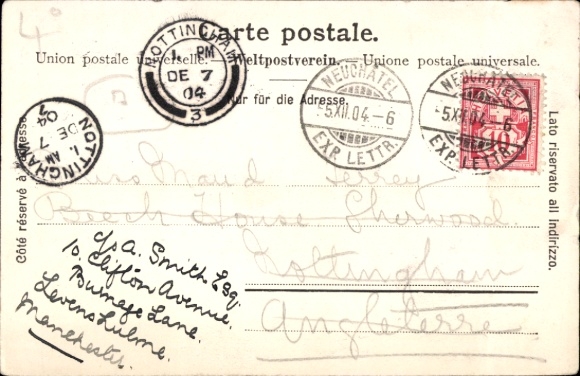 4°
Carte postale.
Union postale universelle. — Weltpostverein. — Unione postale universale.
Nur für die Adresse.
Côté réservé à l'adresse.
Lato riservato all indirizzo.
NOTTINGHAM
1 PM
DE 7
04
3
NOTTINGHAM
1. AM
DE 7
04
NEUCHATEL
-5.XII.04.-6
EXP. LETTR.
NEUCHATEL
-5.XII.04.-6
EXP. LETTR.
10
Miss Maud
Beech House Sherwood
Nottingham
Angleterre
c/o A. Smith Esq.
10. Clifton Avenue.
Burnage Lane.
Levenshulme.
Manchester.